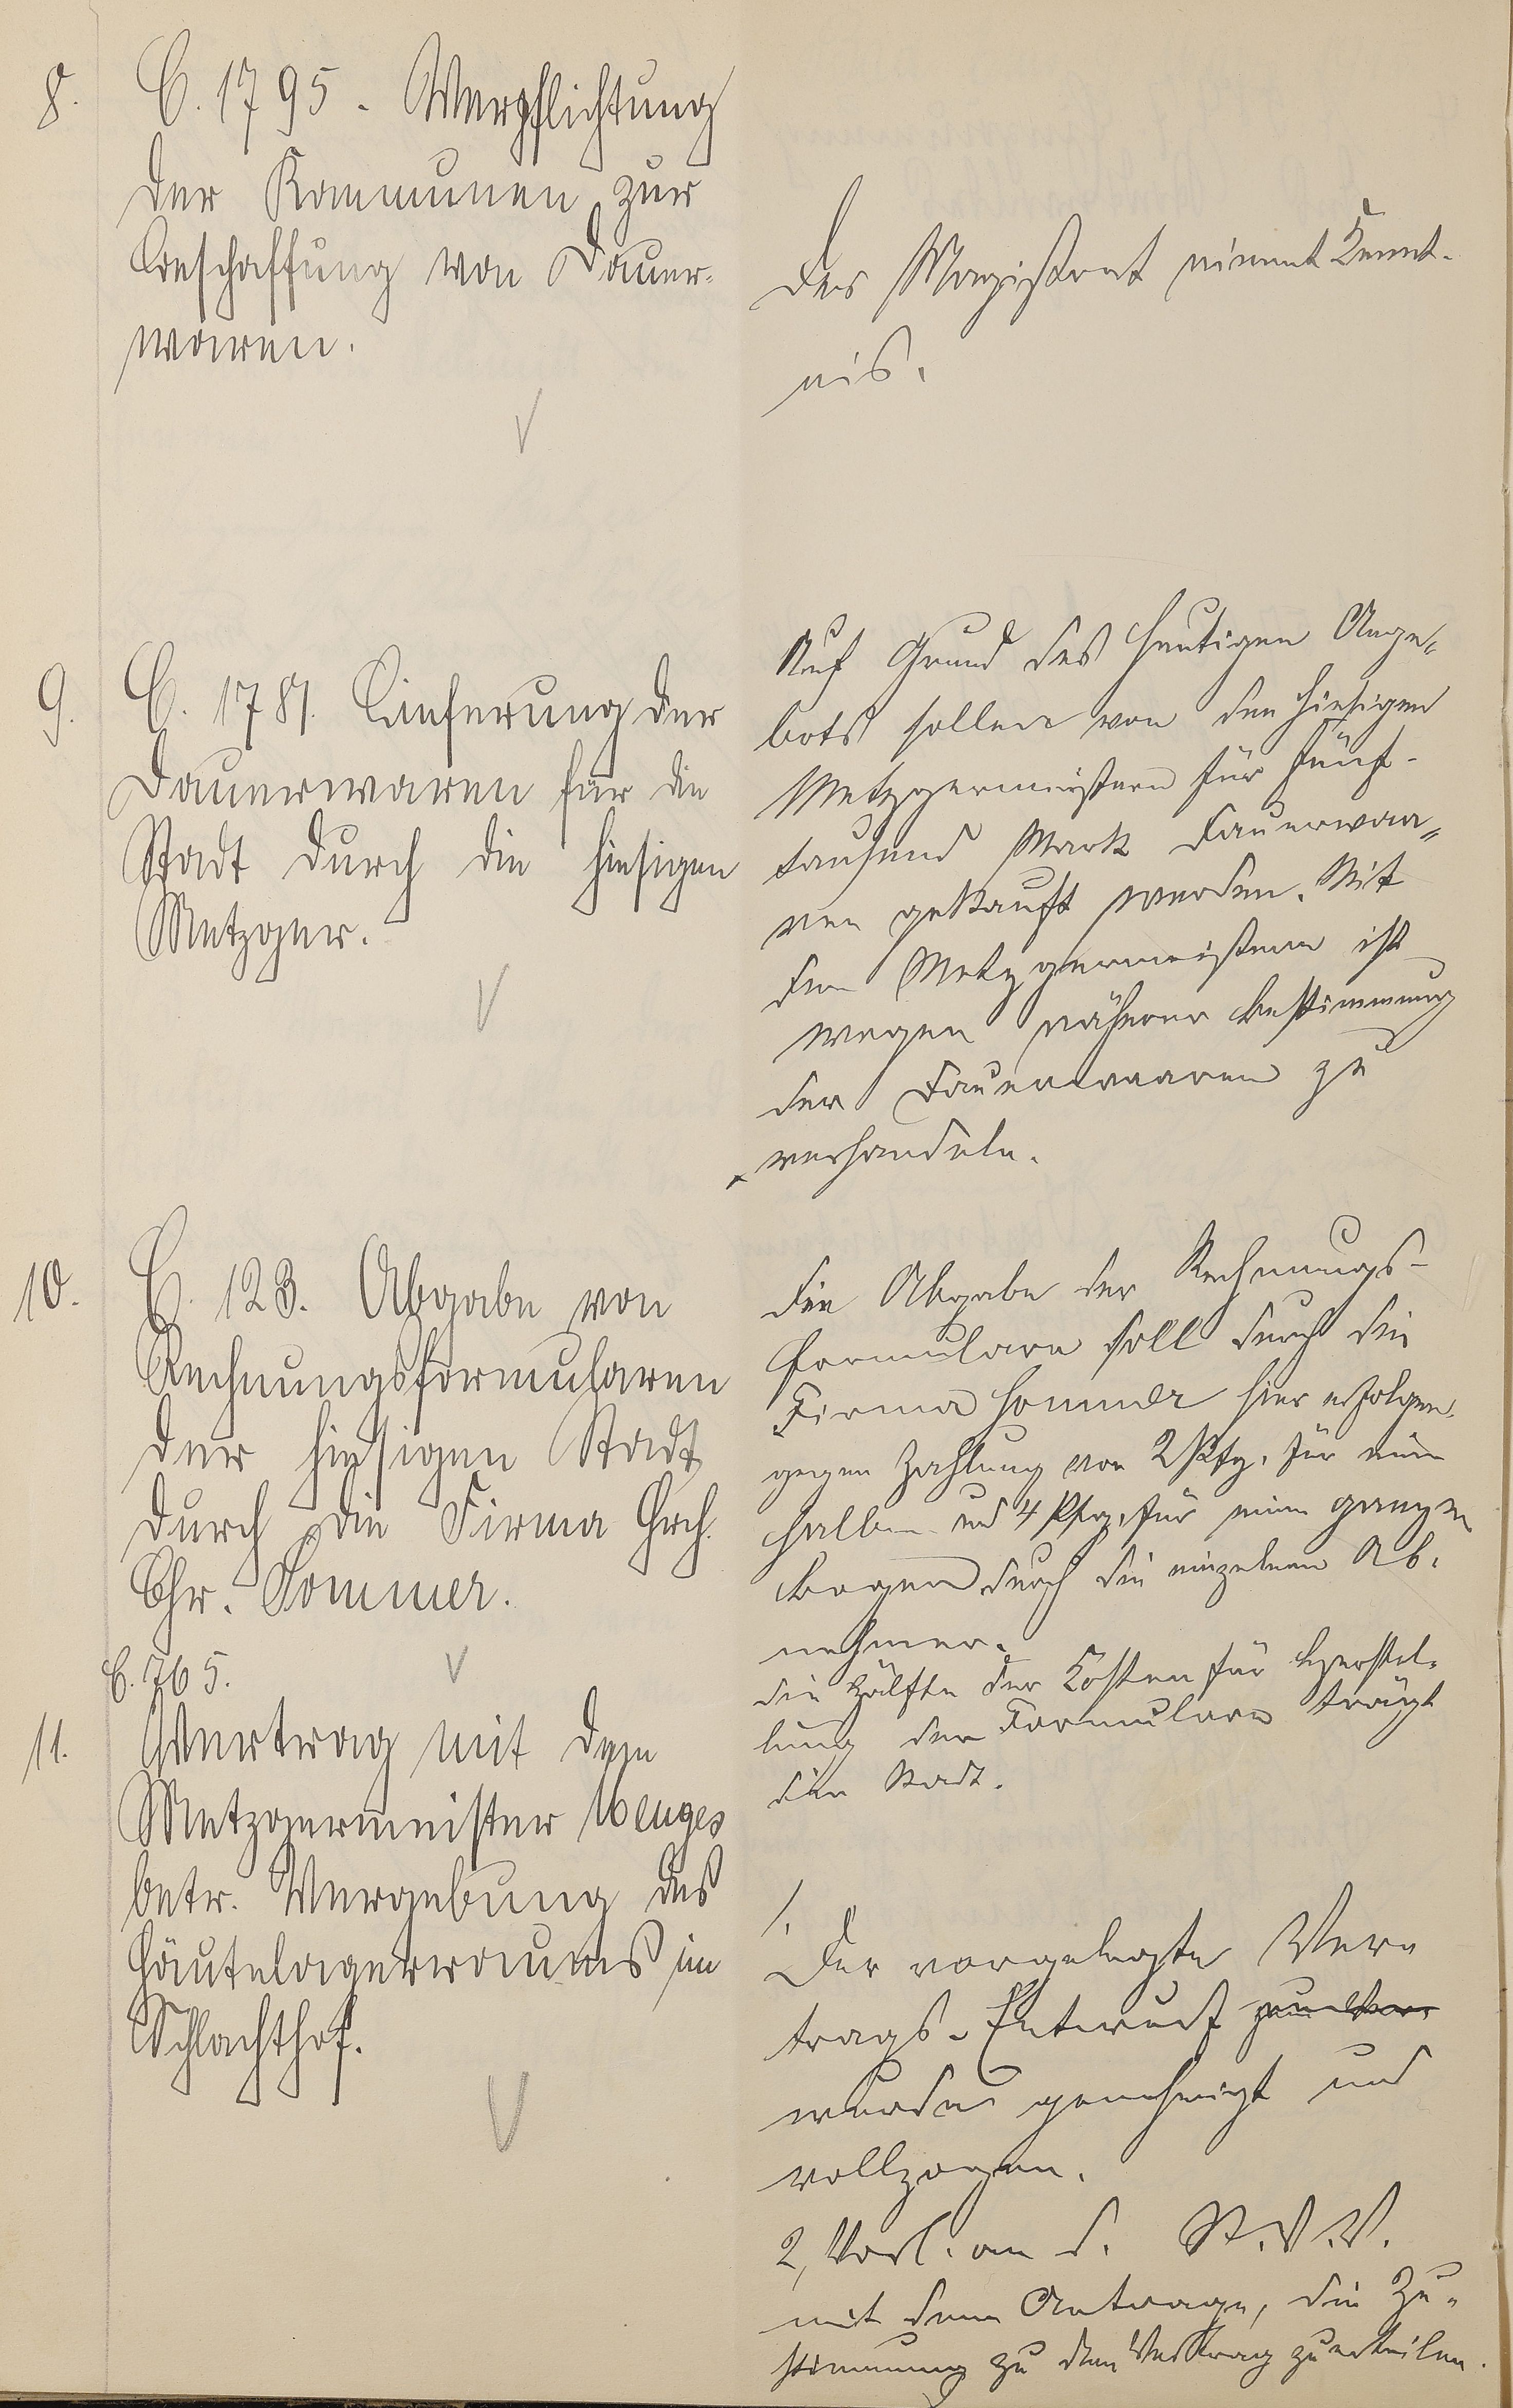 8.
C. 1795 - Verpflichtung
der Kommunen zur
Beschaffung von Dauer-
waren.
Der Magistrat nimmt Kennt-
nis.
9.
C. 1781. Lieferung der
Dauerwaren für die
Stadt durch die hiesigen
Metzger.
Auf Grund des heutigen Ange-
bots sollen von den hiesigen
Metzgermeistern für fünf-
tausend Mark Dauerwaa-
ren gekauft werden. Mit
den Metzgermeistern ist
wegen näherer Bestimmung
der Dauerwaaren zu
verhandeln.
10.
C. 123. Abgabe von
Rechnungsformularen
der hiesigen Stadt
durch die Firma Hrch.
Chr. Sommer.
Die Abgabe der Rechnungs-
formulare soll durch die
Firma Sommer hier erfolgen
gegen Zahlung von 2 Pfg. für einen
halben und 4 Pfg. für einen ganzen
Bogen durch die einzelnen Ab-
nehmer.
Die Hälfte der Kosten für Herstel-
lung der Formulare trägt
die Stadt.
C. 765.
11.
Vertrag mit dem
Metzgermeister Menges
betr. Vergebung des
Häutelagerraums im
Schlachthof.
1.
Der vorgelegte Ver-
trags-Entwurf
wurde genehmigt und
vollzogen.
2, Vorl. an d. St.V.V.
mit dem Antrage, die Zu-
stimmung zu dem Vertrag zu erteilen.